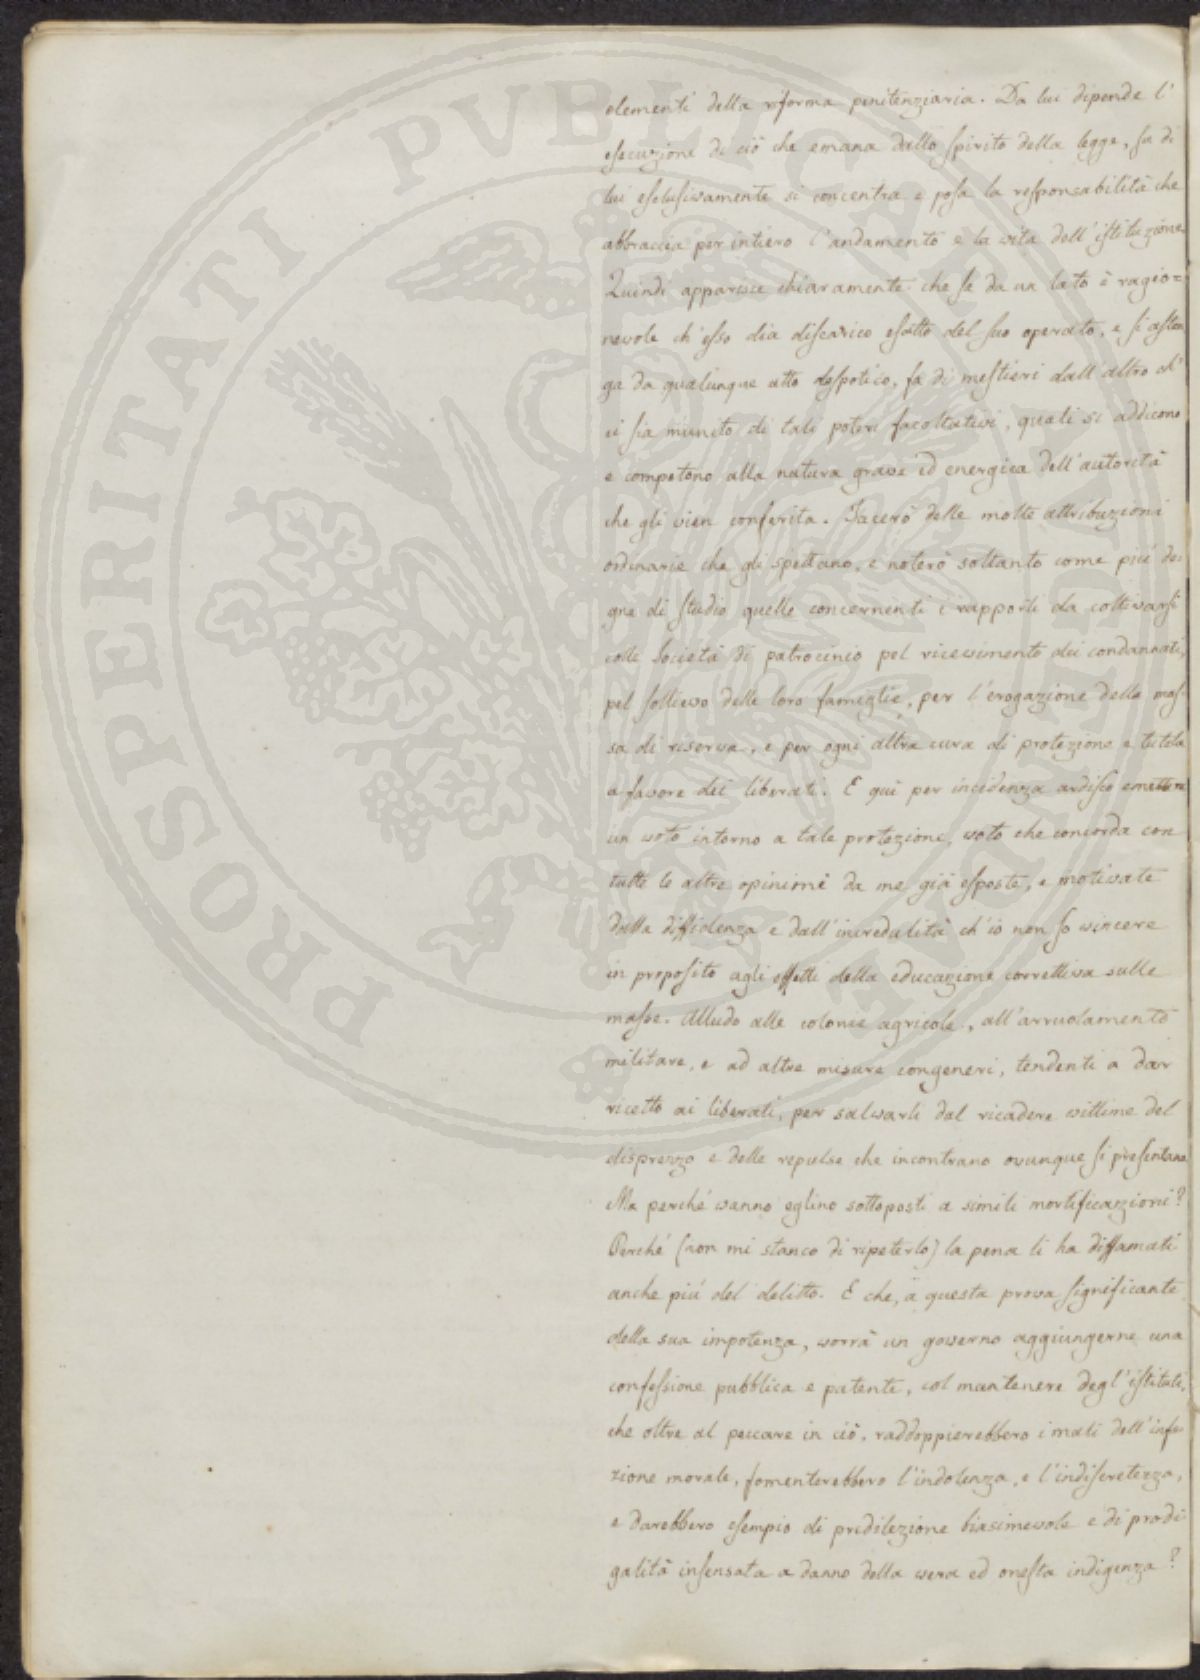 PROSPERITATI PVBLICAE AVGENDAE
elementi della riforma penitenziaria. Da lui dipende l'
esecuzione di ciò che emana dallo spirito della legge, su di
lui esclusivamente si concentra e posa la responsabilità che
abbraccia per intiero l'andamento e la vita dell'istituzione.
Quindi apparisce chiaramente che se da un lato è ragio=
nevole ch'esso dia discarico esatto del suo operato, e si asten
ga da qualunque atto despotico, fa di mestieri dall'altro ch'
ei sia munito di tali poteri facoltativi, quali si addicono
e competono alla natura grave ed energica dell'autorità
che gli vien conferita. Tacerò delle molte attribuzioni
ordinarie che gli spettano, e noterò soltanto come più de
gne di studio quelle concernenti i rapporti da coltivarsi
colle Società di patrocinio pel ricevimento dei condannati,
pel sollievo delle loro famiglie, per l'erogazione della mas-
sa di riserva, e per ogni altra cura di protezione e tutela
a favore dei liberati. E qui per incidenza ardisco emettere
un voto intorno a tale protezione, voto che concorda con
tutte le altre opinioni da me già esposte, e motivate
dalla diffidenza e dall'incredulità ch'io non so vincere
in proposito agli effetti della educazione correttiva sulle
masse. Alludo alle colonie agricole, all'arruolamento
militare, e ad altre misure congeneri, tendenti a dar
ricetto ai liberati, per salvarli dal ricadere vittime del
disprezzo e delle repulse che incontrano ovunque si presentano.
Ma perché vanno eglino sottoposti a simili mortificazioni?
Perché (non mi stanco di ripeterlo) la pena li ha diffamati
anche più del delitto. E che, a questa prova significante
della sua impotenza, vorrà un governo aggiungerne una
confessione pubblica e patente, col mantenere degl'istituti,
che oltre al peccare in ciò, raddoppierebbero i mali dell'infe
zione morale, fomenterebbero l'indolenza, e l'indiscretezza,
e darebbero esempio di predilezione biasimevole e di prodi
galità insensata a danno della vera ed onesta indigenza?